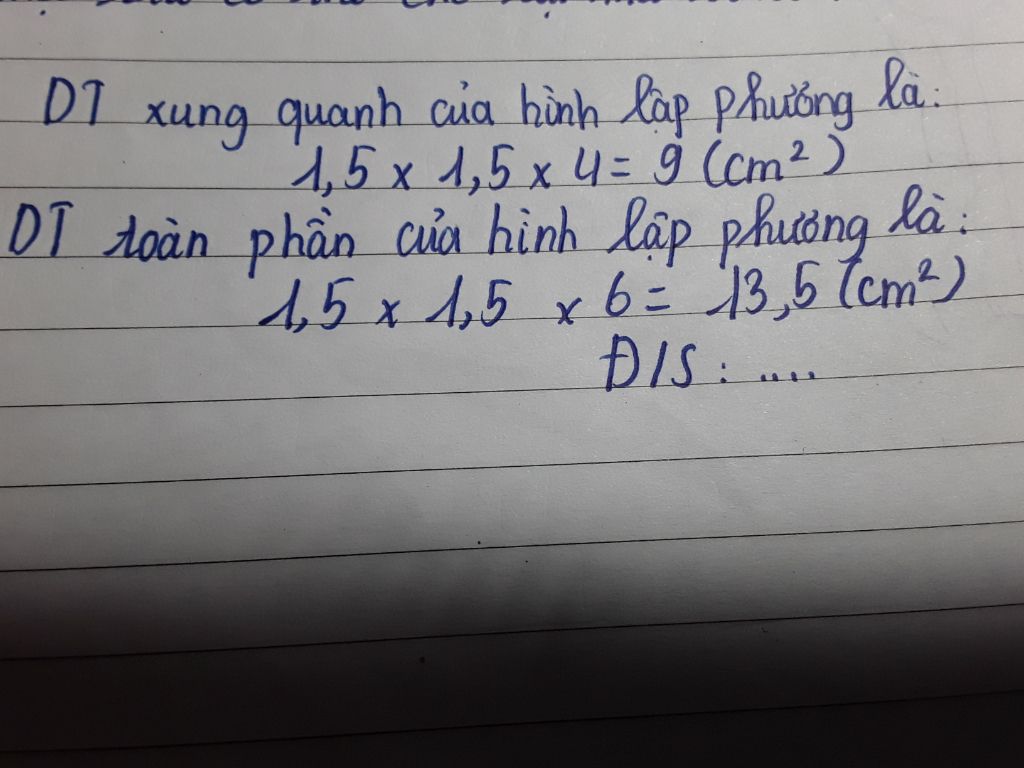 DT xung quanh của hình lập phương là:
1,5 x 1,5 x 4 = 9 (cm²)
DT toàn phần của hình lập phương là:
1,5 x 1,5 x 6 = 13,5 (cm²)
Đ/S : ....